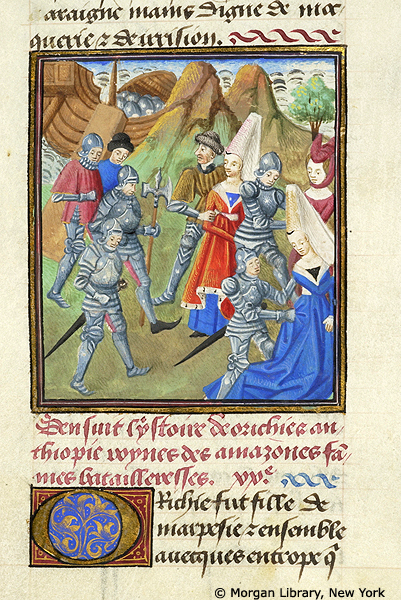 araigne mains digne de moc
querie ⁊ de irrision.
Sensuit lystoire de orichies an
thiopie roynes des amazones fā
mes batailleresses.
Orichie fut fille de
marpesie ⁊ ensemble
avecques entrope q̄
© Morgan Library, New York